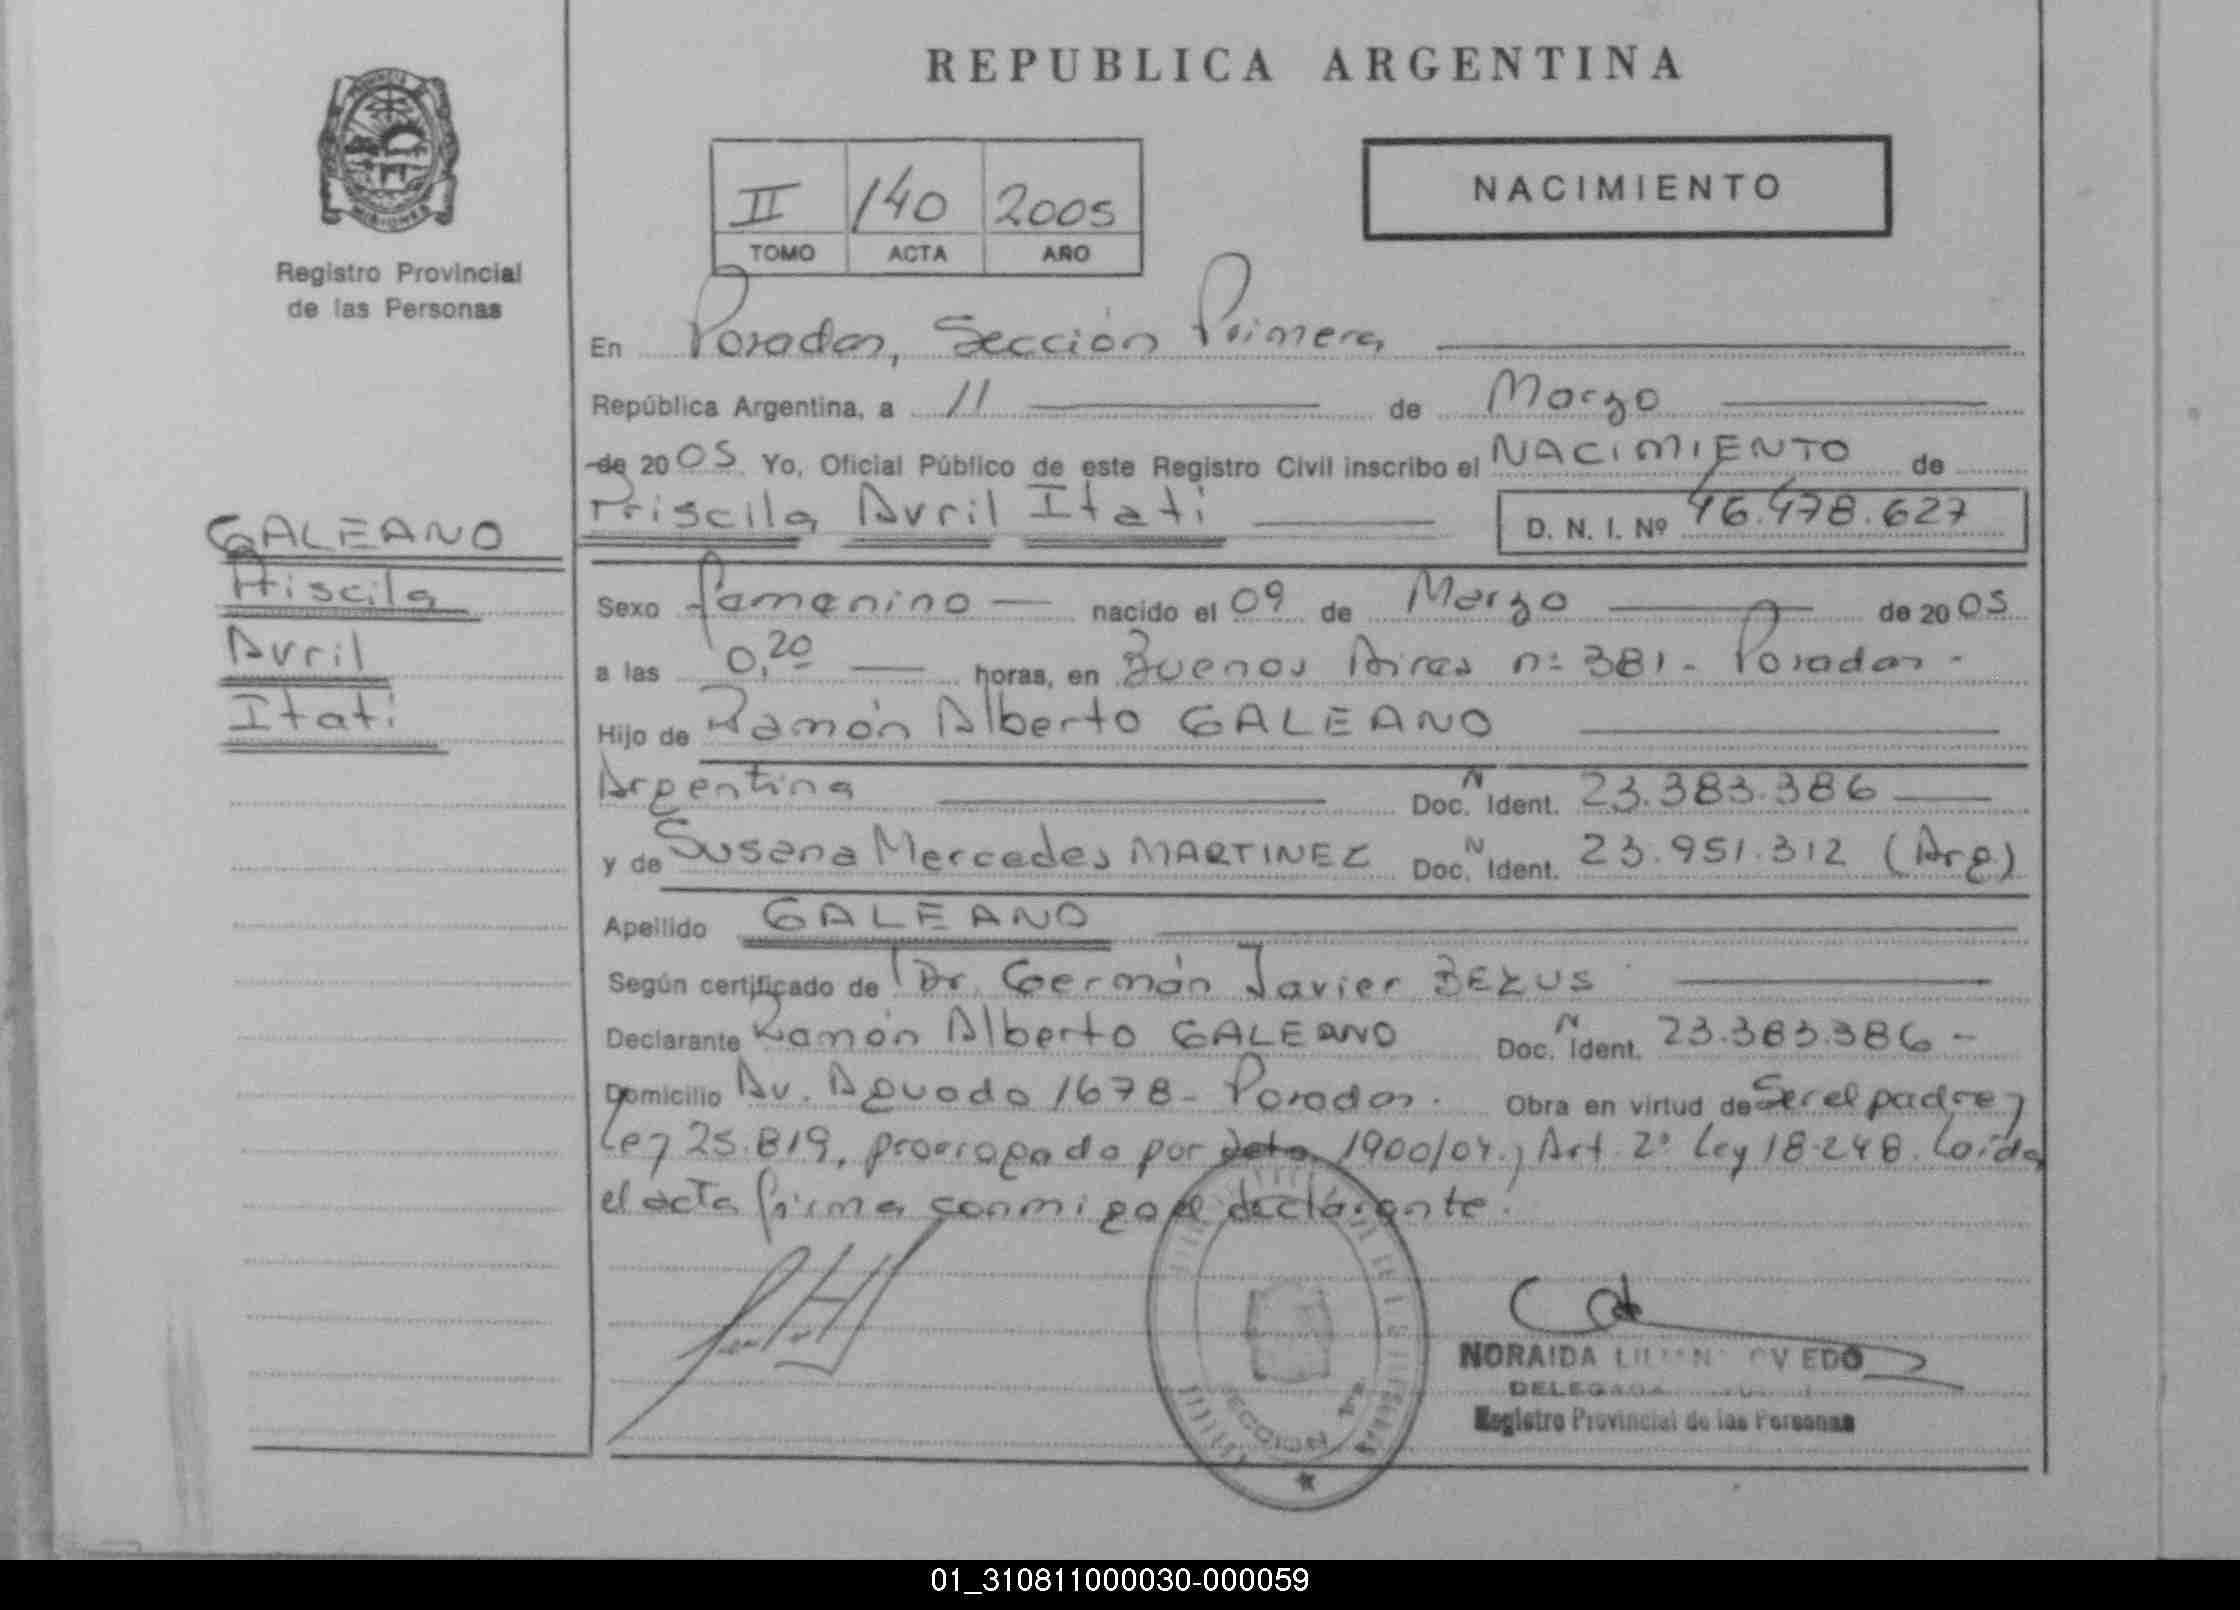 REPUBLICA ARGENTINA
PROVINCIA DE
MISIONES
Registro Provincial
de las Personas
II 140 2005
TOMO ACTA AÑO
NACIMIENTO
En Posadas, Sección Primera
República Argentina, a 11 de Marzo
de 2005 Yo, Oficial Público de este Registro Civil inscribo el NACIMIENTO de
Priscila Avril Itati D. N. I. Nº 46.478.627
GALEANO
Priscila
Avril
Itati
Sexo femenino nacido el 09 de Marzo de 2005
a las 0,20 horas, en Buenos Aires nº 381 - Posadas -
Hijo de Ramón Alberto GALEANO
Argentina Doc. N Ident. 23.383.386
y de Susana Mercedes MARTINEZ Doc. N Ident. 23.951.312 (Arg)
Apellido GALEANO
Según certificado de Dr. Germán Javier BEZUS
Declarante Ramón Alberto GALEANO Doc. N Ident. 23.383.386 -
Domicilio Av. Aguado 1678 - Posadas. Obra en virtud de Ser el padre y
Ley 25.819, prorrogado por dcto 1900/04 y Art. 2º Ley 18.248. Leída
el acta firma conmigo el declarante.
SECCION
NORAIDA OVIEDO
DELEGADA
Registro Provincial de las Personas
01_310811000030-000059